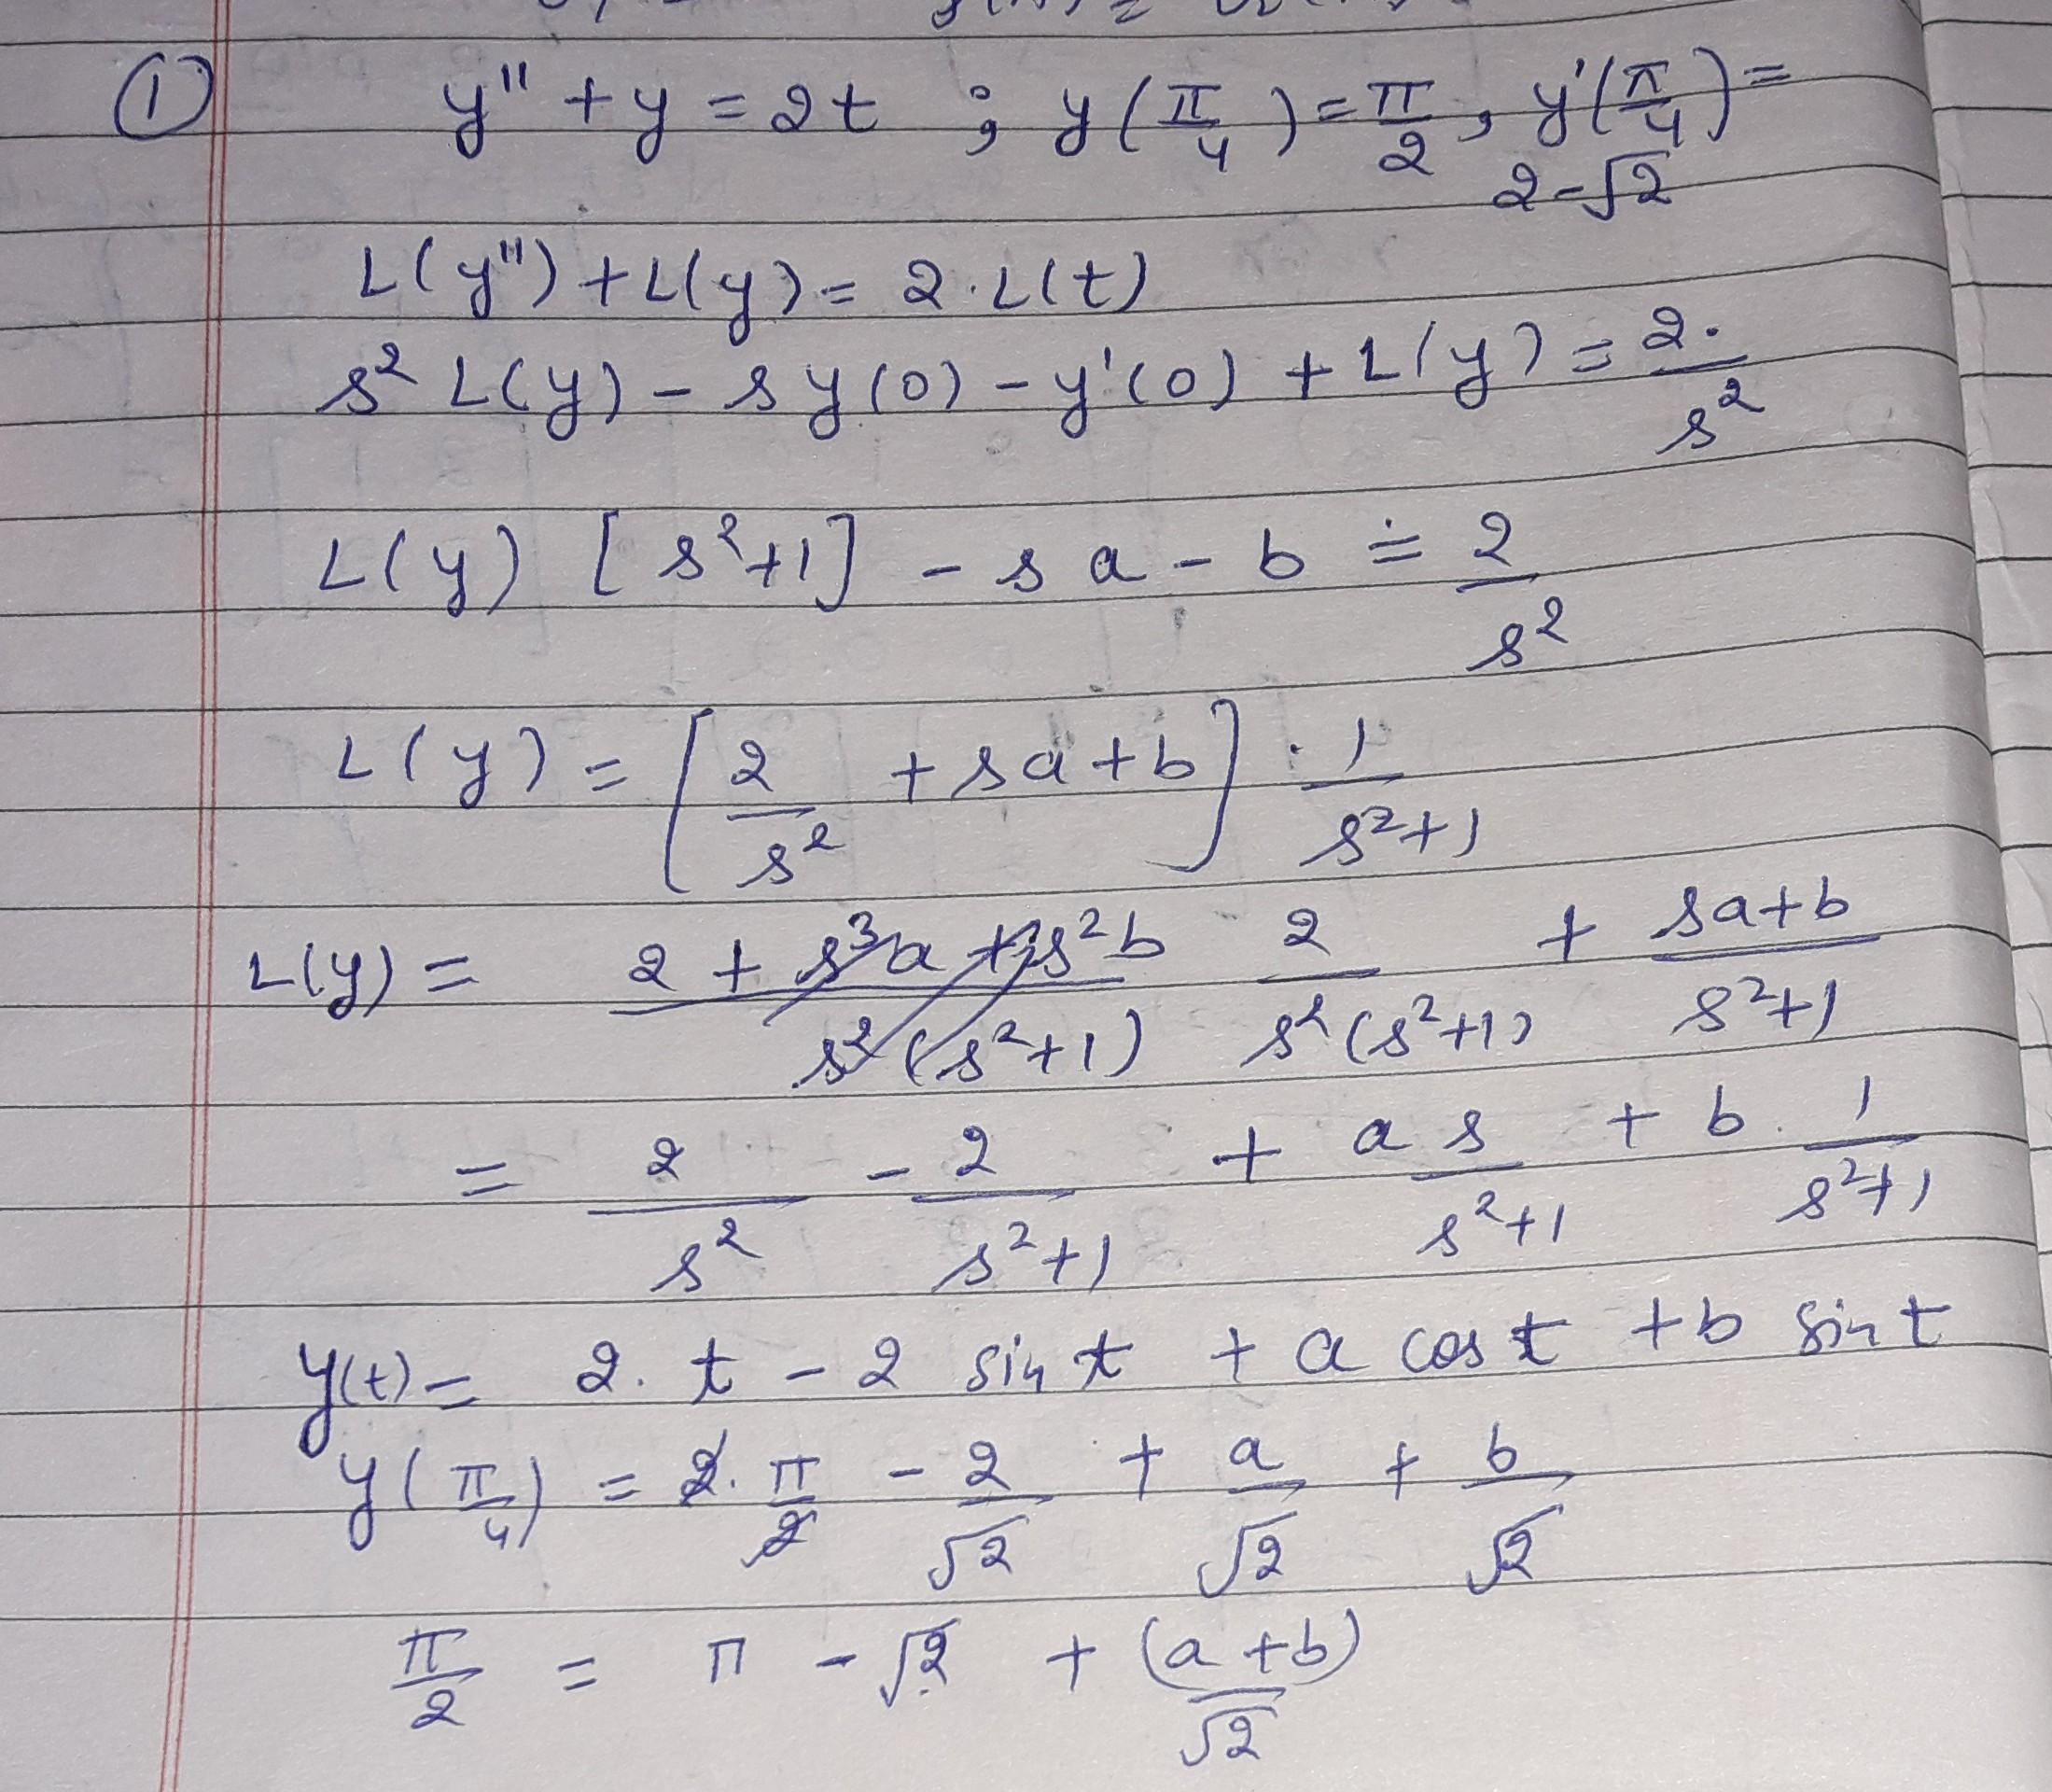 ① y" + y = 2t ; y(π/4) = π/2, y'(π/4) =
2-√2
L(y") + L(y) = 2·L(t)
s² L(y) - s y(0) - y'(0) + L(y) = 2·/s²
L(y) [s²+1] - s a - b = 2/s²
L(y) = [2/s² + sa + b] · 1/s²+1
L(y) = 2 + s³a + s²b/s²(s²+1) 2/s²(s²+1) + sa+b/s²+1
= 2/s² - 2/s²+1 + a s/s²+1 + b · 1/s²+1
y(t) = 2. t - 2 sin t + a cos t + b sin t
y(π/4) = 2. π/2 - 2/√2 + a/√2 + b/√2
π/2 = π - √2 + (a+b)/√2